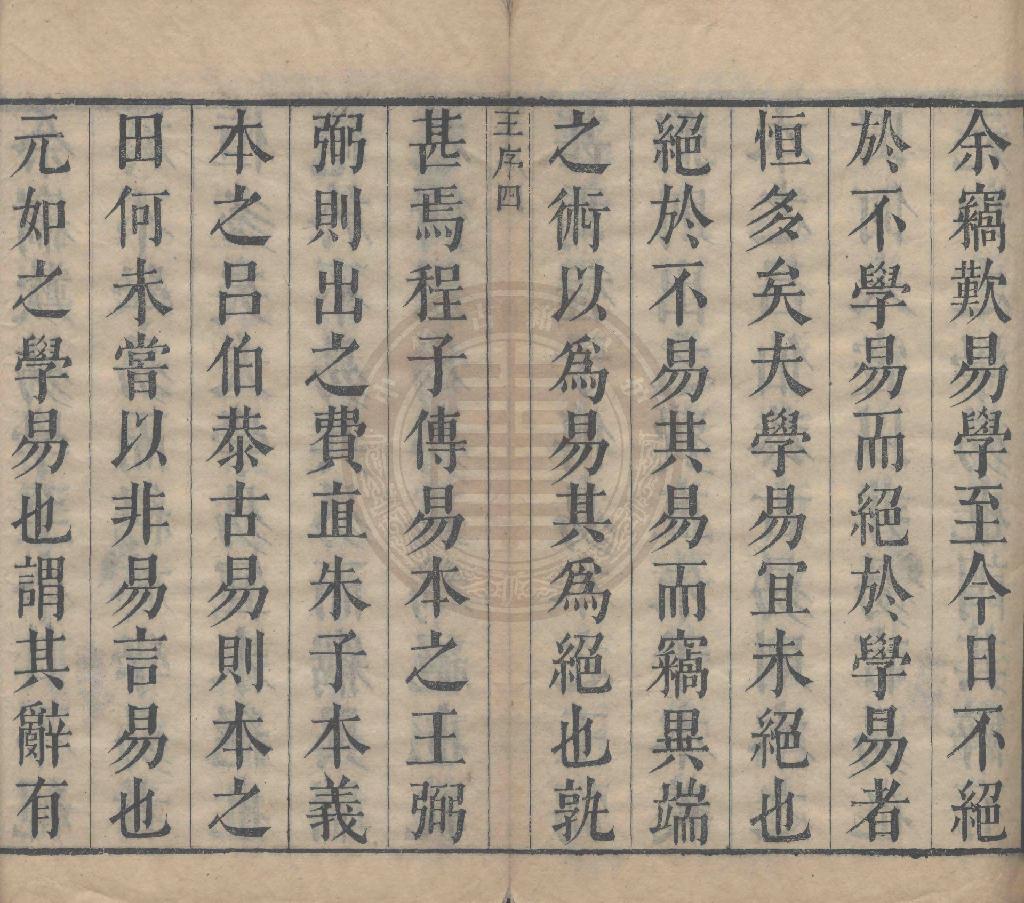 余竊歎易學至今日不絕
於不學易而絕於學易者
恒多矣夫學易冝未絕也
絕於不易其易而竊異端
之術以爲易其爲絕也孰
王序四
甚焉程子傳易本之王弼
弼則出之費直朱子本義
本之呂伯恭古易則本之
田何未嘗以非易言易也
元如之學易也謂其辭有